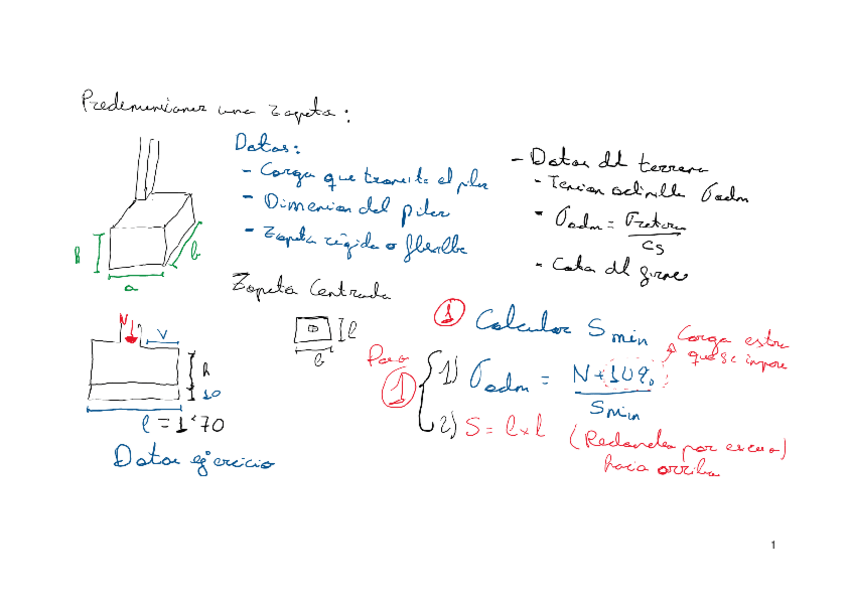 Predimensionar una zapata:
Datos:
- Carga que transmite el pilar
- Dimension del pilar
- Zapata rígida o flexible
- Datos del terreno
- Tension admisible σadm
- σadm = σrotura / CS
- Cota del firme
h
a
b
Zapata Centrada
N
V
h
10
l = 1'70
Datos ejercicio
l
l
① Calcular Smin
Carga extra
que se impone
Paso
①
1) σadm = N+10% / Smin
2) S = l x l (Redondeo por exceso)
hacia arriba
1